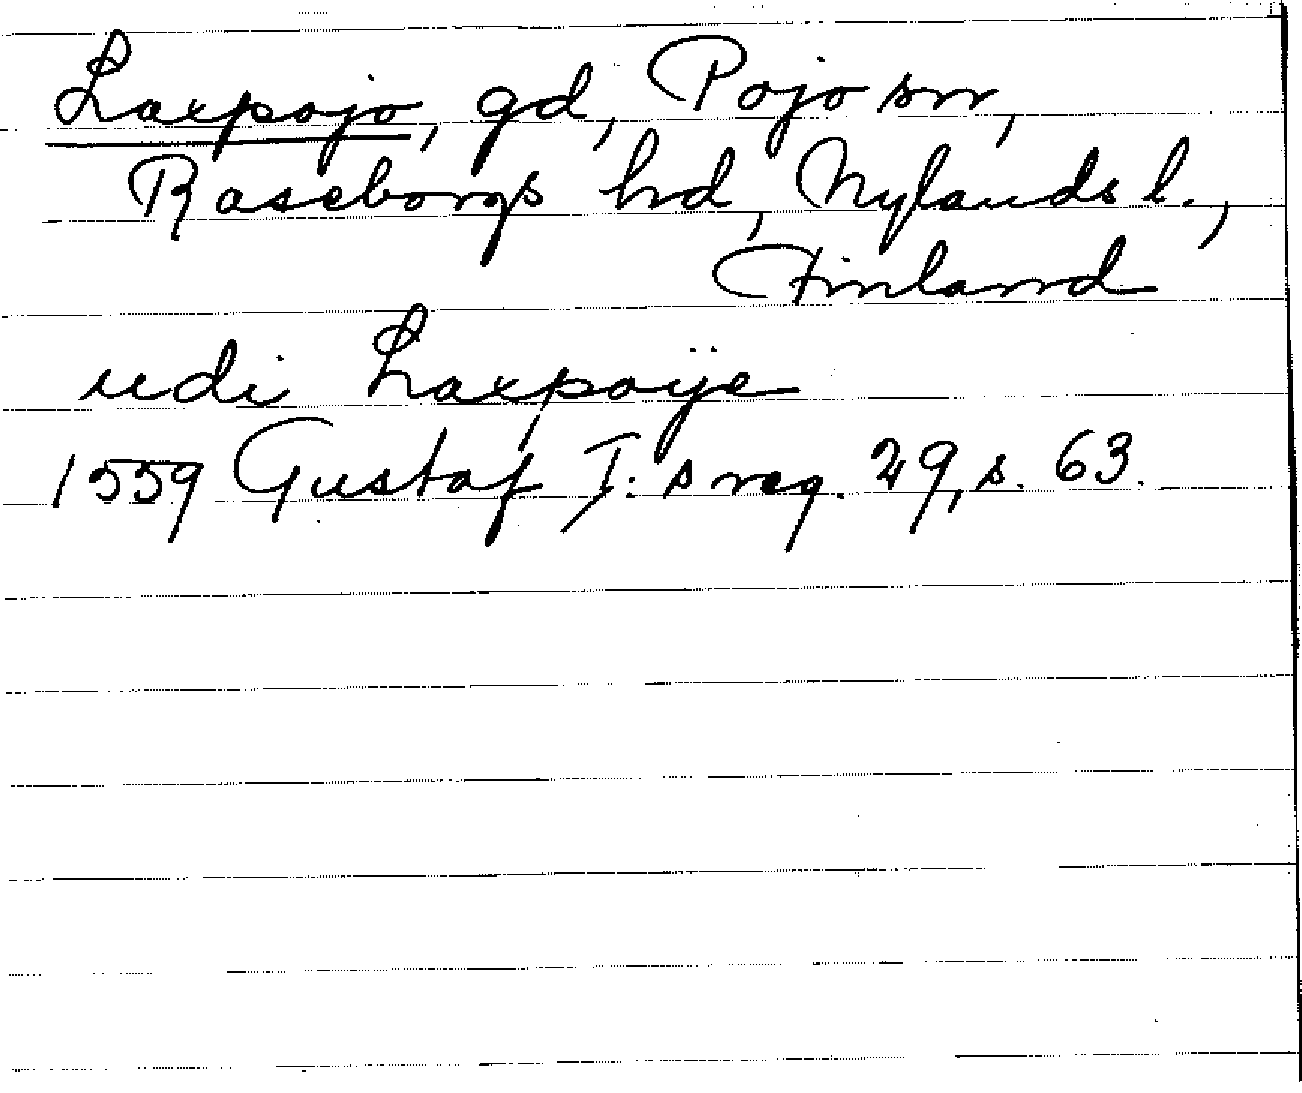 Laxpojo, gd, Pojo sn,
Raseborgs hd, Nylands l.,
Finland
udi Laxpoÿe
1559 Gustaf I:s reg. 29, s. 63.